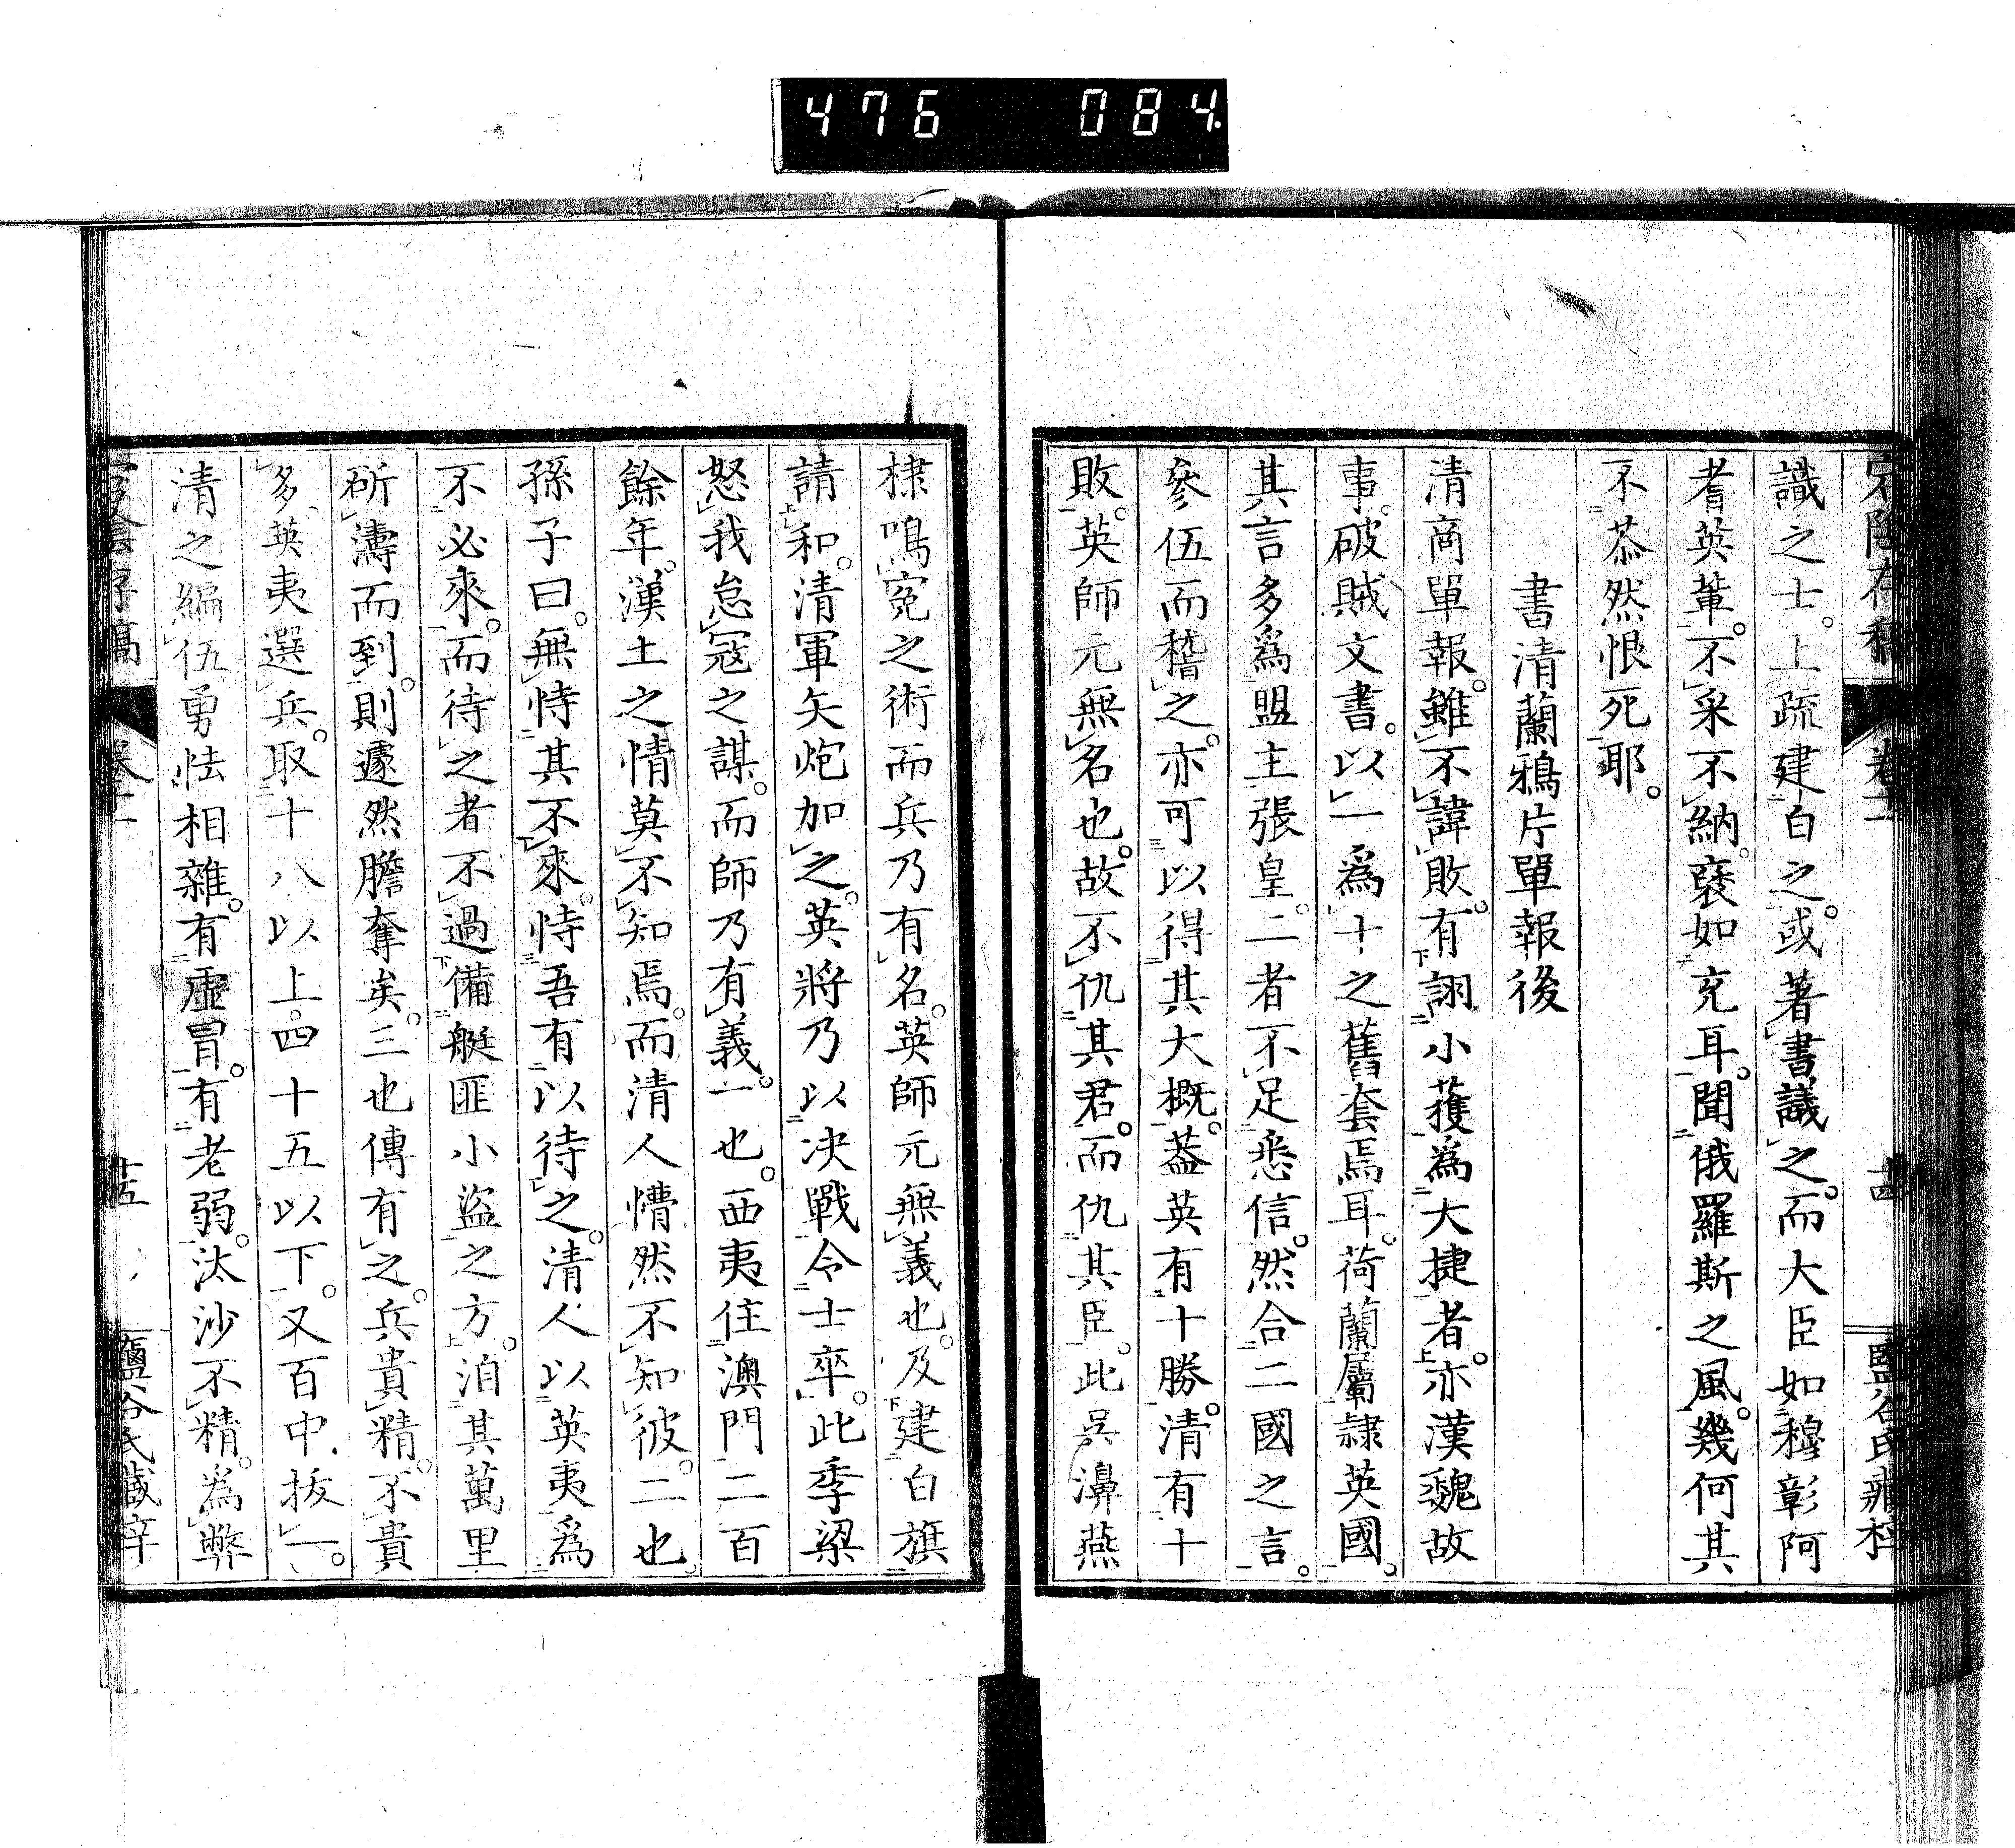 476 084
宕陰存稿 卷十一 十四 鹽谷氏藏梓
識之士。上疏建白之。或著書議之。而大臣如穆彰阿
耆英輩。不采不納。褎如充耳。聞俄羅斯之風。幾何其
不恭然恨死耶。
書清蘭鴉片單報後
清商單報。雖不諱敗。有詡小獲爲大捷者。亦漢魏故
事。破賊文書。以一爲十之舊套焉耳。荷蘭屬隷英國。
其言多爲盟主張皇。二者不足悉信。然合二國之言。
參伍而稽之。亦可以得其大概。蓋英有十勝。清有十
敗。英師元無名也。故不仇其君。而仇其臣。此吳濞燕
棣鳴寃之術而兵乃有名。英師元無義也。及建白旗
請和。清軍矢炮加之。英將乃以決戰令士卒。此季梁
怒我怠寇之謀。而師乃有義。一也。西夷住澳門二百
餘年。漢土之情莫不知焉。而清人懵然不知彼。二也。
孫子曰。無恃其不來。恃吾有以待之。清人以英夷爲
不必來。而待之者不過備艇匪小盜之方。洎其萬里
斫濤而到。則遽然膽奪矣。三也傳有之。兵貴精。不貴
多。英夷選兵。取十八以上。四十五以下。又百中拔一。
清之編伍勇怯相雜。有虛冒。有老弱。汰沙不精。爲弊
宕陰存稿 卷十一 十五 鹽谷氏藏梓